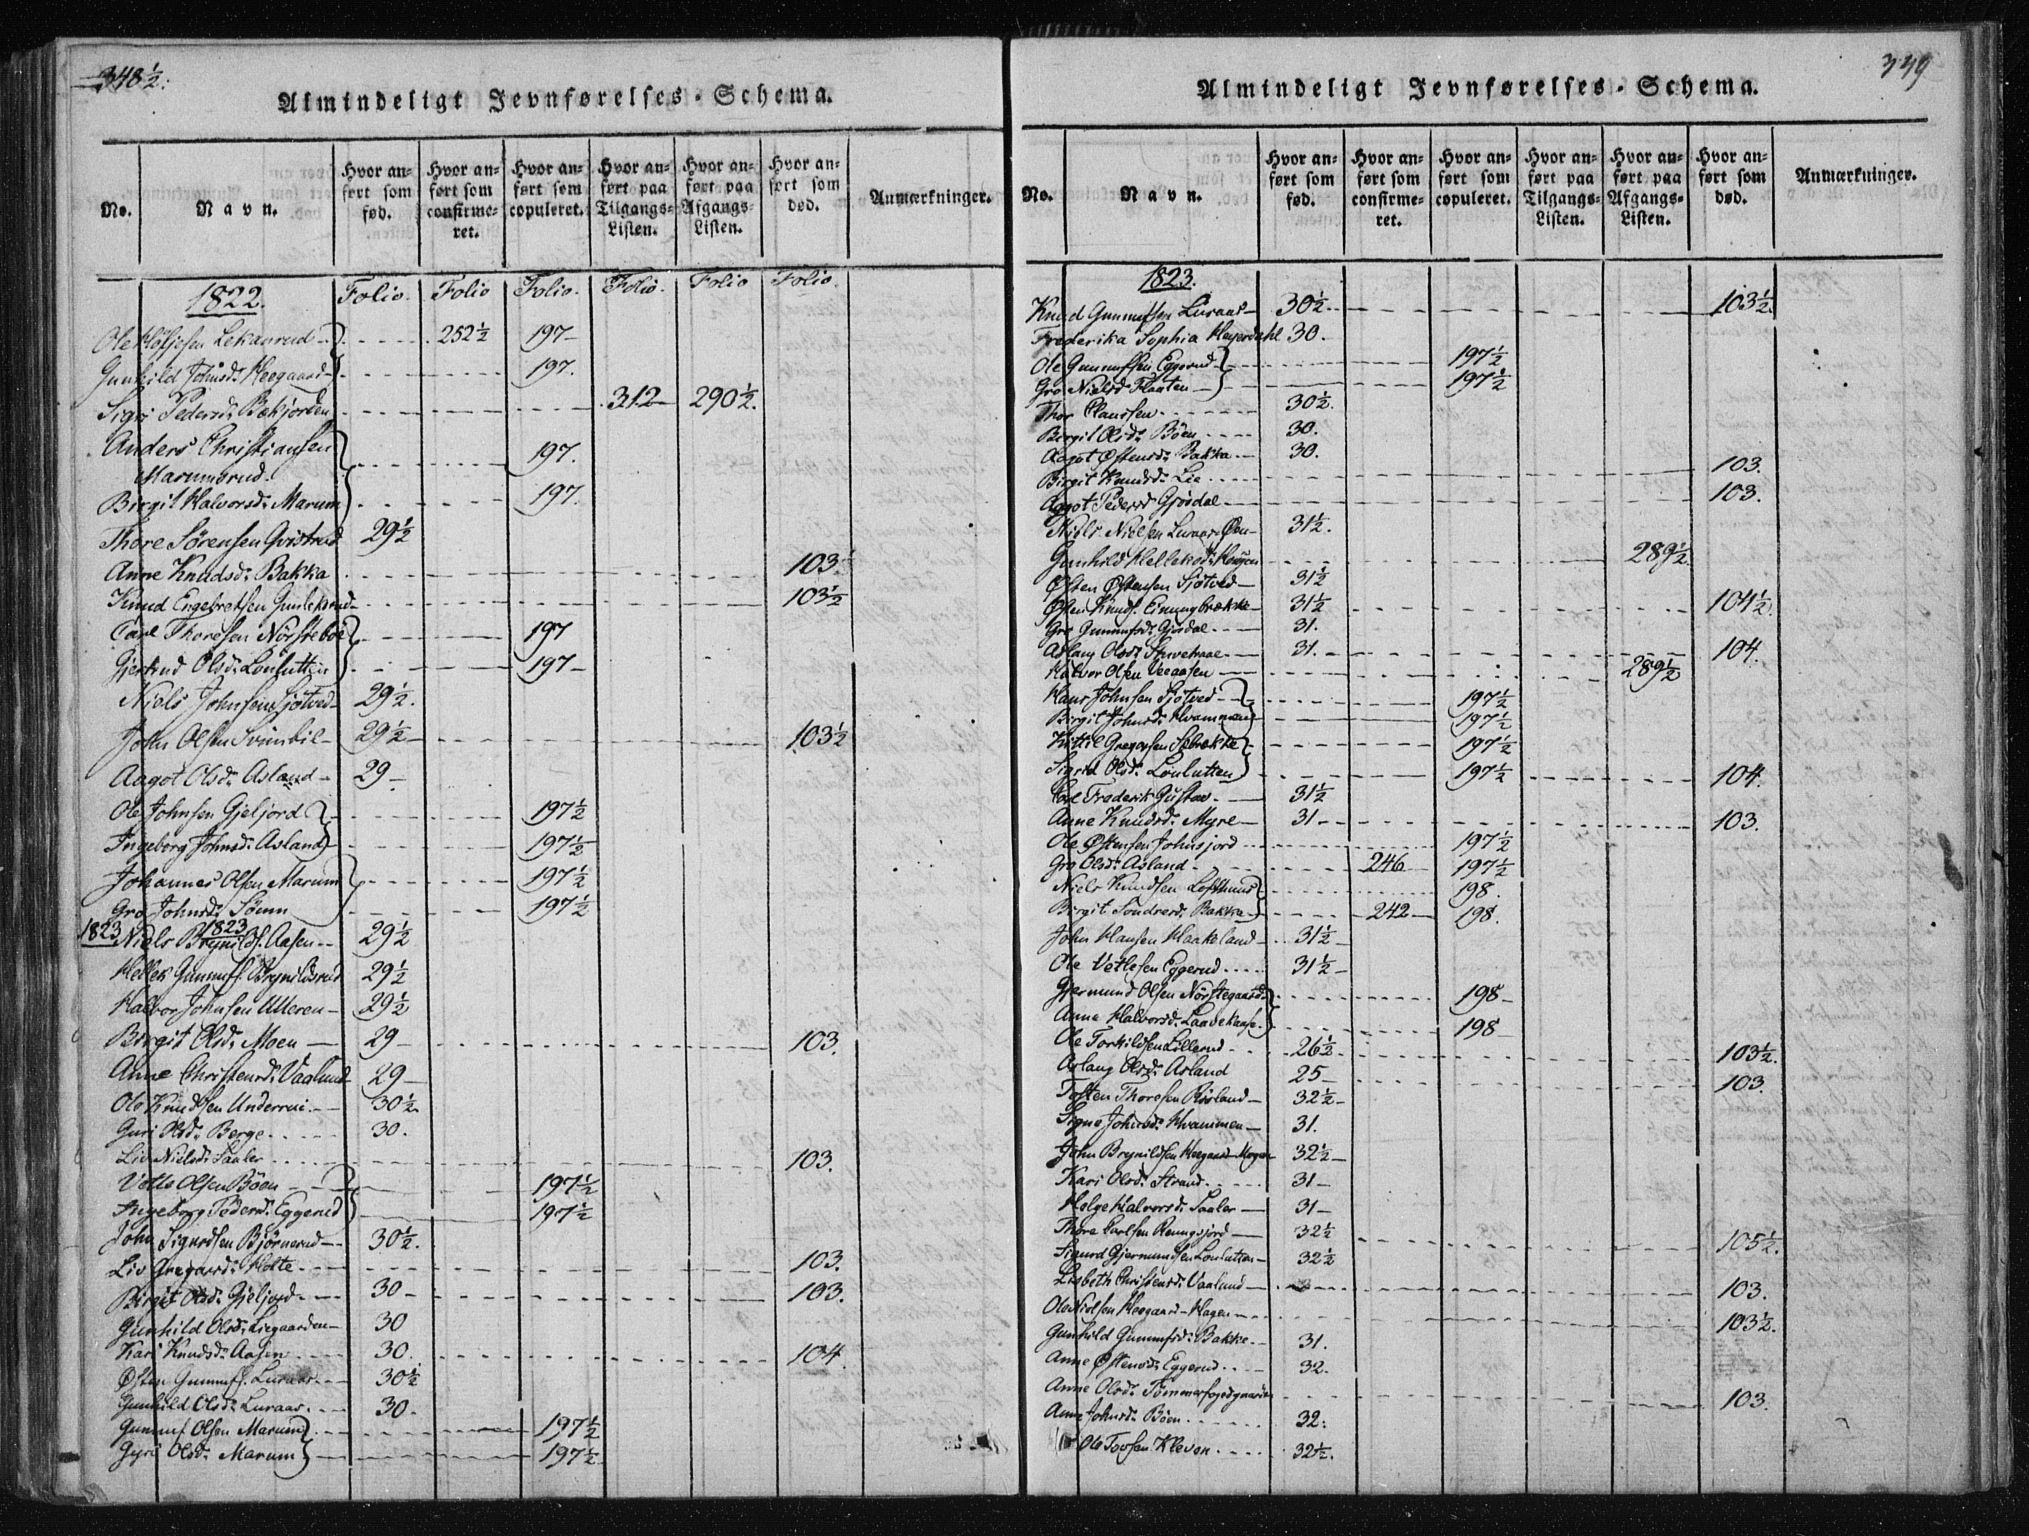 348½.
Almindeligt Jevnførelses-Schema.
No.
Navn.
Hvor anført som fød.
Hvor anført som confirmeret.
Hvor anført som copuleret.
Hvor anført paa Tilgangs-Listen.
Hvor anført paa Afgangs-Listen.
Hvor anført som død.
Anmærkninger.
1822. Folio. Folio Folio. Folio. Folio Folio.
Ole Kløfjesen Lekanrud 252½ 197
Gunhild Johnsd. Heegaard 197.
Sigri Pedersd. Bækjorden 312 290½.
Anders Christiansen 197.
Marumsrud.
Birgit Halvorsd. Marum 197.
Thore Sørensen Qvistrud 29½
Anne Knudsd. Bakka 103.
Knud Engebretsen Gunleksrud 103½
Carl Thoresen Nørsteboe 197
Gjertrud Olsd. Lonlutten 197
Niels Johnsen Sjøtved 29½.
John Olsen Svinbil 29½ 103½
Aagot Olsd. Asland 29
Ole Johnsen Gjeljord 197½
Ingeborg Johnsd. Asland 197½
Johannes Olsen Marum 197½
Gro Johnsd. Sønm 197½
1823 1823
Niels Brynilds. Aasen 29½
Hellek Gunnufs. Brynildsrud 29½
Halvor Johnsen Ulleren 29½
Birgit Olsd. Moen 29 103.
Anne Christensd. Vaalund 29
Ole Knudsen Underrui 30½
Guri Olsd. Berge 30.
Liv Nielsd. Saaler 103.
Vetle Olsen Bøen 197½
Ingeborg Pedersd. Eggerud 197½
John Sigurdsen Bjørnerud 30½.
Liv Gregarsd. Holte 103.
Birgit Olsd. Gjeljord 30 103.
Gunhild Olsd. Liegaarden 30
Kari Knudsd. Aasen 30. 104
Østen Gunnufs. Luraas 30½
Gunhild Olsd. Luraas. 30.
Gunnuf Olsen Marum 197½
Gyri Olsd. Marum 197½
349
Almindeligt Jevnførelses-Schema.
No.
Navn.
Hvor anført som fød.
Hvor anført som confirmeret.
Hvor anført som copuleret.
Hvor anført paa Tilgangs-Listen.
Hvor anført paa Afgangs-Listen.
Hvor anført som død.
Anmærkninger.
1823.
Knud Gunnufsen Luraas 30½ 103½.
Frederika Sophia Heyerdahl 30.
Ole Gunnufsen Eggerud 197½
Gro Nielsd. Flaaten 197½
Thor Claussen 30½.
Birgit Olsd. Bøen 30.
Aagot Østensd. Bakka 30.
Birgit Knudsd. Lie 103.
Aagot Pedersd. Gjøsdal 103.
Niels Nielsen Luraas-Øen 31½.
Gunhild Helleksd. Haugen 289½
Østen Østensen Sjøtved 31½
Østen Knuds. Einungbrække 31½ 104½.
Gro Gunnufsd. Gjøsdal 31.
Aslaug Olsd. 31. 104.
Halvor Olsen Veeaasen 289½
Hans Johnsen Sjøtved 197½
Birgit Johnsd. Kvammen 197½
Kittil Gregarsen Sæbrække 197½
Sigrid Olsd. Lonlutten 197½ 104.
Carl Frederik Gustav. 31½
Anne Knudsd. Myre 31 103.
Ole Østensen Johnsjord 197½
Gro Olsd. Asland 246 197½
Niels Knudsen Lofthuus 198.
Birgit Sondresd. Bakka 242 198.
John Hansen Haakeland 31½
Ole Vetlesen Eggerud 31½
Gjermund Olsen Nørstegaard 198
Anne Halvorsd. Laavekaase 198
Ole Torkildsen Lillerud 26½ 103½.
Aslaug Olsd. Asland 25 103.
Tosten Thoresen Røsland 32½
Signe Johnsd. Kvammen 31.
John Brynildsen Heegaard-Mogen 32½
Kari Olsd. Strand 31
Helge Halvorsd. Saaler 31
Thore Carlsen Rungsjord 32½ 105½.
Sigurd Gjermundsen Lonlutten 32½
Lisbeth Christensd. Vaalund 103.
Ole Nielsen Heegaard-Hagen 103½.
Gunhild Gunnufsd. Bakke 31.
Anne Østensd. Eggerud 32.
Anne Olsd. Tømmerfogedgaarden 103.
Anne Johnsd. Bøen 32.
Ole Tovsen Kleven 32½.